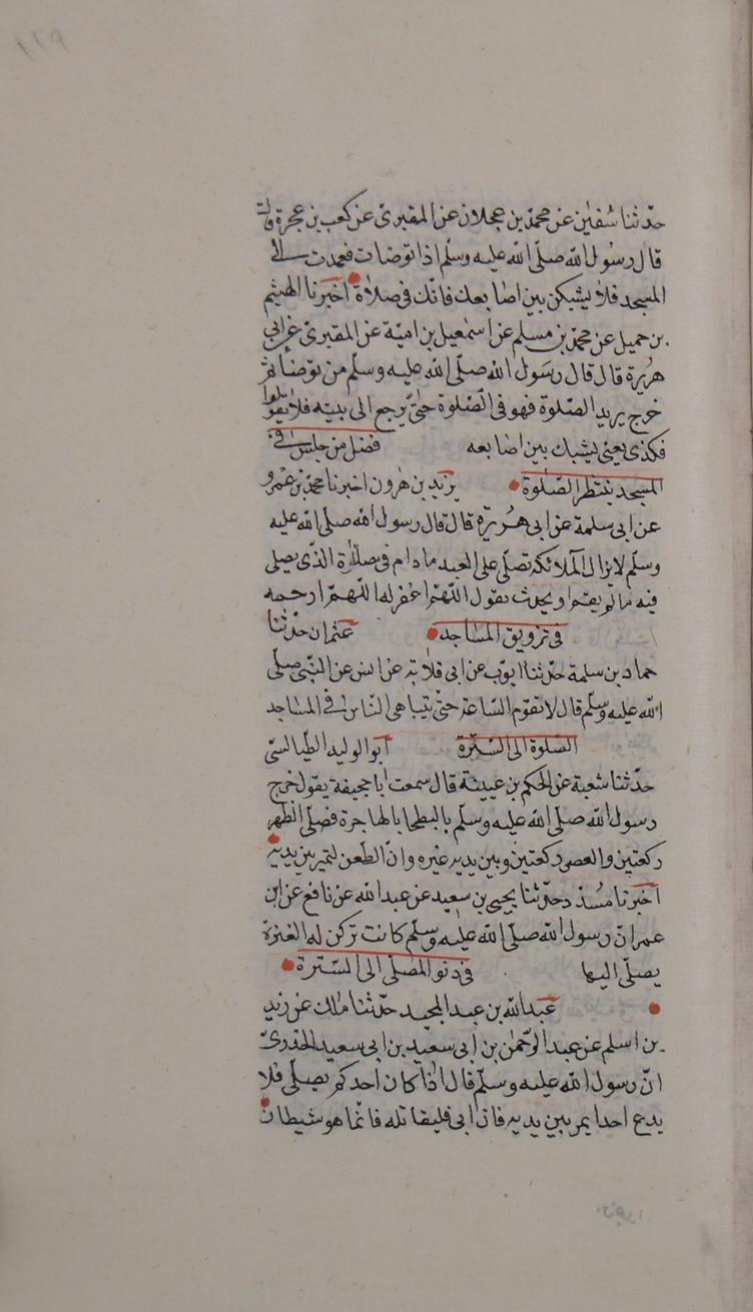 حدّثنا سُفيٰن عن محمّد بن عجلان عن المقبرىّ عن كعب بن عجرة قال
قال رسول الله صلّى الله عليه وسلّم اذا توضات فعمدت الى
المسجد فلا يشبكن بين اصابعك فانّك فى صلاة اخبرنا الهيثم
بن حميل عن محمّد بن مسلم عن اسمٰعيل بن اميّة عن المقبرىّ عن ابى
هريرة قال قال رسول الله صلّى الله عليه وسلّم من توضا ثمّ
خرج يريد الصّلوة فهو فى الصّلوة حتّى يرجع الى بيته فلا يقولوا
هكذى يعنى يشبك بين اصابعه فضل من جلس فى
المسجد ينتظر الصّلوة يزيد بن هٰرون اخبرنا محمّد بن عمرو
عن ابى سلمة عن ابى هريرة قال قال رسول الله صلى الله عليه
وسلّم لا يزال الملائكة تصلّى على العبد مادام فى صلاة الّذى يصلى
فيه مالم يقم او يحدث يقول اللّهمّ اغفر له اللّهمّ ارحمه
فى تزويق المساجد عثمان حدّثنا
حماد بن سلمة حدّثنا ايوّب عن ابى قلابة عن انس عن النّبى صلّى
الله عليه وسلّم قال لا تقوم السّاعة حتّى يتباهى النّاس فى المساجد
الصّلوة الى السّترة ابو الوليد الطّيالسىّ
حدّثنا شعبة عن الحكم بن عيينة قال سمعت ابا جحيفة يقول خرج
رسول الله صلّى الله عليه وسلّم بالبطحا بالهاجرة فصلّى الظّهر
ركعتين والعصر ركعتين وبين يديه عنزه وانّ الظّعن لتمرّ بين يديه
اخبرنا مسدّد حدّثنا يحيى بن سعيد عن عبد الله عن نافع عن ابن
عمر انّ رسول الله صلّى الله عليه وسلّم كانت تركز له العنزة
يصلّى اليها فى دنو المصلّى الى السّترة
عبد الله بن عبد المجيد حدّثنا مٰلك عن زيد
بن اسلم عن عبد الرّحمٰن بن ابى سعيد بن ابى سعيد الخدرىّ
انّ رسول الله عليه وسلّم قال اذا كان احدكم يصلّى فلا
يدع احدا يمر بين يديه فان ابى فليقاتله فانّما هو شيطان